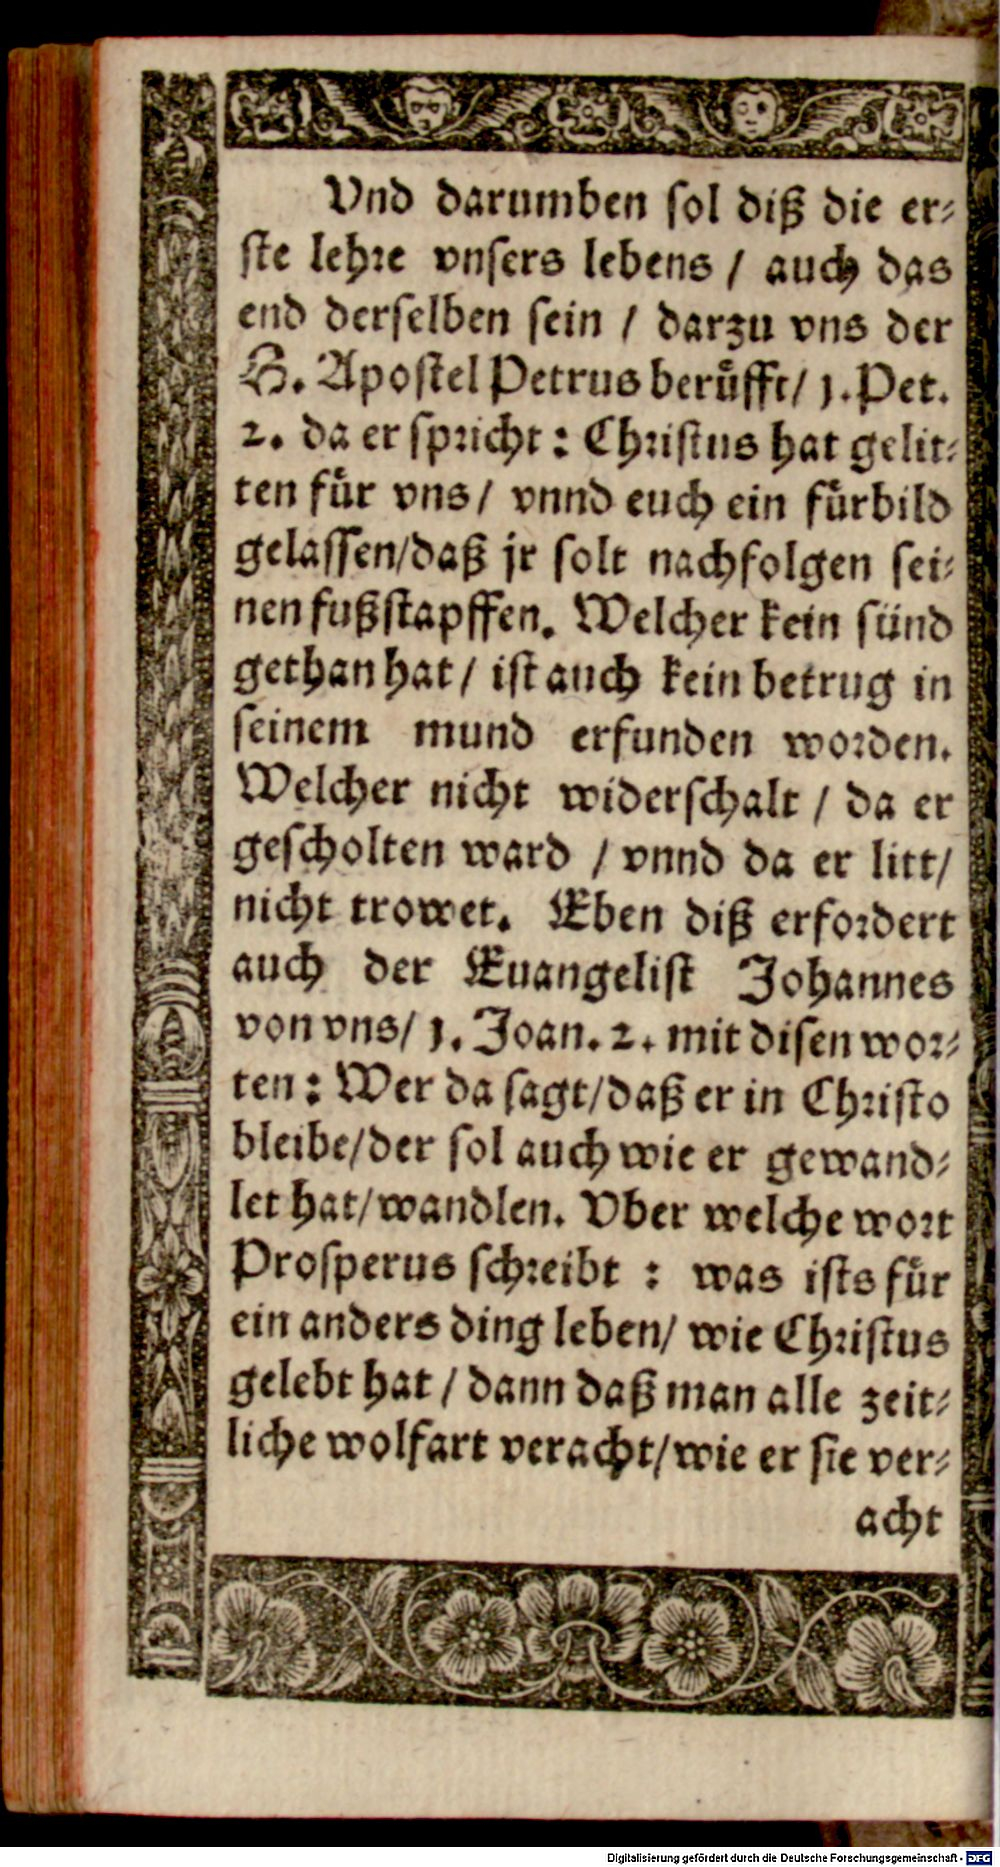 Vnd darumben sol diß die er-
ste lehre vnsers lebens / auch das
end derselben sein / darzu vns der
H. Apostel Petrus berüfft/ 1. Pet.
2. da er spricht: Christus hat gelit-
ten für vns/ vnnd euch ein fürbild
gelassen/daß jr solt nachfolgen sei-
nen fußstapffen. Welcher kein sünd
gethan hat/ ist auch kein betrug in
seinem mund erfunden worden.
Welcher nicht widerschalt / da er
gescholten ward / vnnd da er litt/
nicht trowet. Eben diß erfordert
auch der Euangelist Johannes
von vns/ 1. Joan. 2. mit disen wor-
ten: Wer da sagt/daß er in Christo
bleibe/der sol auch wie er gewand-
let hat/wandlen. Vber welche wort
Prosperus schreibt : was ists für
ein anders ding leben/ wie Christus
gelebt hat / dann daß man alle zeit-
liche wolfart veracht/wie er sie ver-
acht
Digitalisierung gefördert durch die Deutsche Forschungsgemeinschaft - DFG